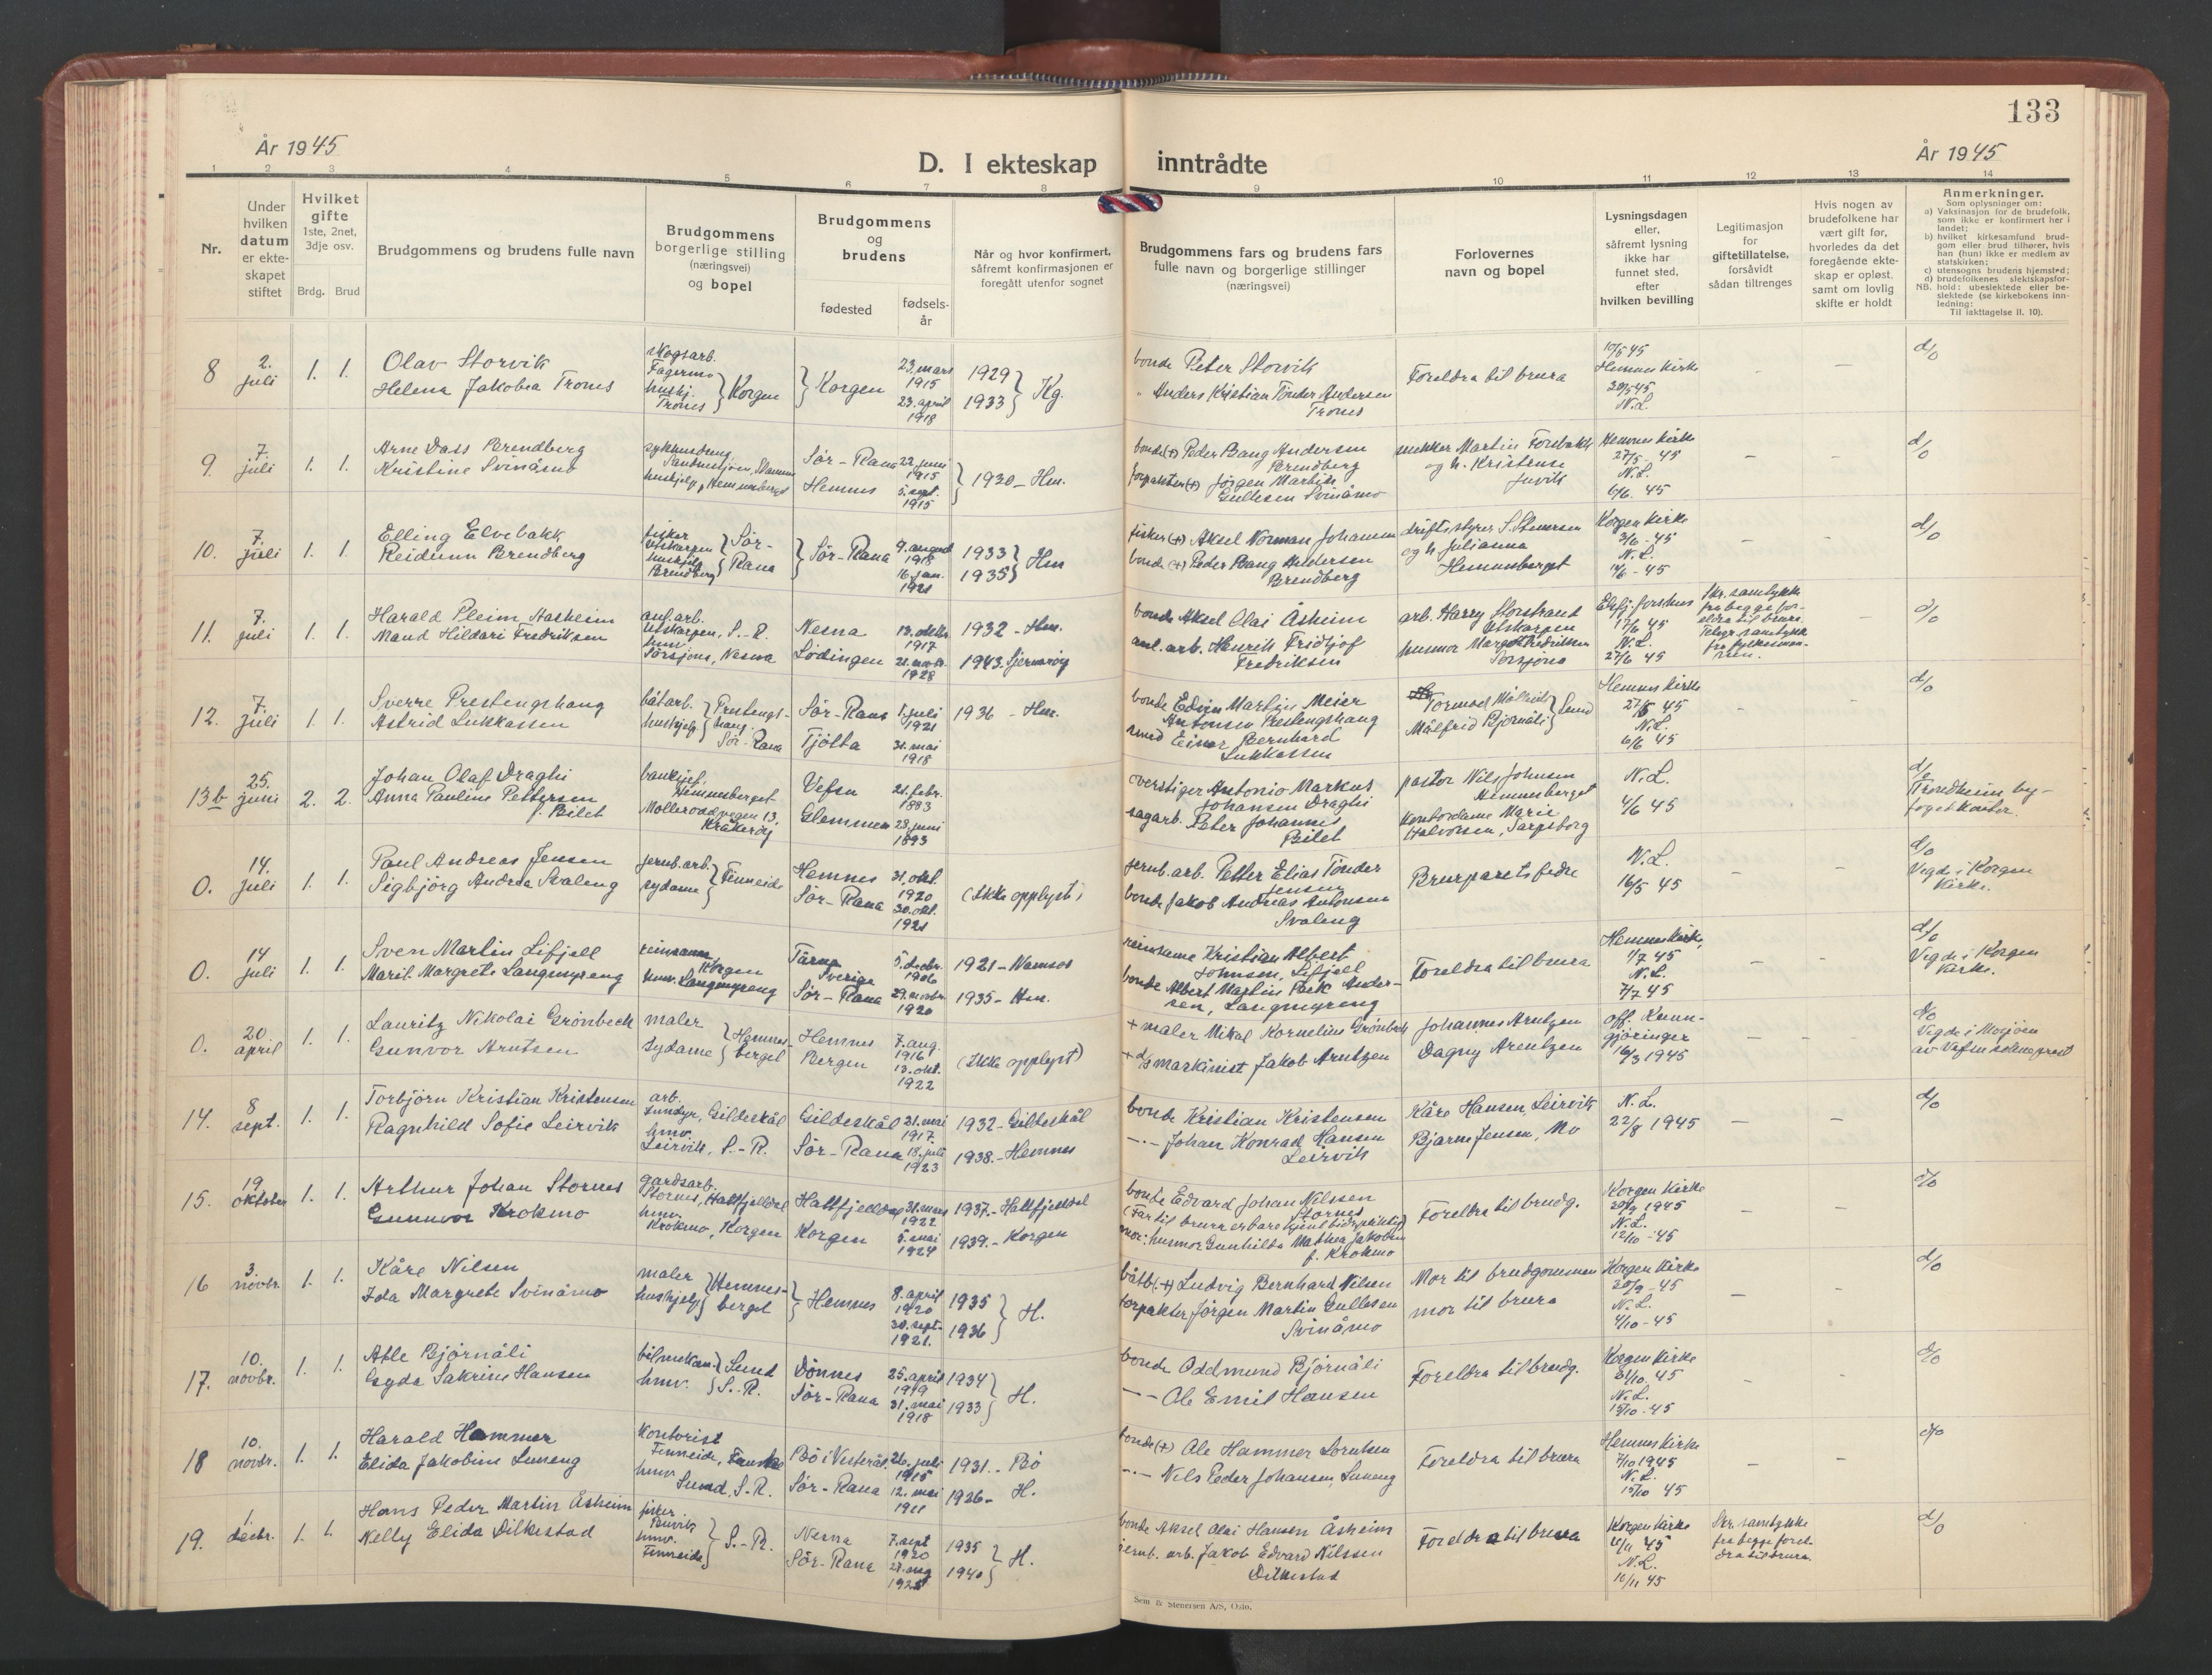 133
År 1945
År 1945
D. I ekteskap inntrådte
1 2 3 4 5 6 7 8 9 10 11 12 13 14
Nr.
Under hvilken datum er ekteskapet stiftet
Hvilket gifte
1ste, 2net, 3dje osv.
Brdg. Brud
Brudgommens og brudens fulle navn
Brudgommens borgerlige stilling (næringsvei) og bopel
Brudgommens og brudens
fødested
fødselsår
Når og hvor konfirmert, såfremt konfirmasjonen er foregått utenfor sognet
Brudgommens fars og brudens fars fulle navn og borgerlige stillinger (næringsvei)
Forlovernes navn og bopel
Lysningsdagen eller, såfremt lysning ikke har funnet sted, efter hvilken bevilling
Legitimasjon for giftetillatelse, forsåvidt sådan tiltrenges
Hvis nogen av brudefolkene har vært gift før, hvorledes da det foregående ekteskap er opløst, samt om lovlig skifte er holdt
Anmerkninger.
Som oplysninger om:
a) Vaksinasjon for de brudefolk, som ikke er konfirmert her i landet;
b) hvilket kirkesamfund brudgom eller brud tilhører, hvis han (hun) ikke er medlem av statskirken;
c) utensogns brudens hjemsted;
d) brudefolkenes slektskapsforhold: ubeslektede eller beslektede (se kirkebokens innledning:
NB.
Til iakttagelse II. 10).
8 2. juli 1. 1. Olav Storvik
Helena Jakobea Trones
skogsarb. Fagermo
hushj. Trones } Korgen
Korgen 23. mars 1915
23. april 1918
1929
1933 } Kg.
bonde Peter Storvik
" Anders Kristian Tönder Andersen Trones
Foreldra til brura
10/5 45 Hemnes kirke
N.L.
d/o
9. 7. juli 1. 1. Arne Dass Brendberg
Kristine Svinåmo
Sandnessjøen
hushjelp, Hemnesberget
Sör-Rana 22. juni 1915
Hemnes 5. sept. 1915
1930 - Hm.
bonde (+) Peder Bang Andersen Brendberg
forpakter (+) Jörgen Martin Gullesen Svinåmo
snekker Martin Forsbakk
og h. Kristense Juvik
Hemnes kirke 27/5 - 45
N.L. 6/6. 45
d/o
10. 7. juli 1. 1. Elling Elvebakk
Reidunn Brendberg
fisker Utskarpen
hushjelp Brendberg } Sör-Rana
Sör-Rana 9. august 1918
16. jan. 1921
1933
1935 } Hm
fisker (+) Aksel Norman Johansen
bonde (+) Peder Bang Andersen Brendberg
driftsstyrer S. Stenersen
og h. Julianna
Hemnesberget
Korgen kirke 3/6 - 45
N.L.
d/o
11. 7. juli 1. 1. Harald Pleim Aasheim
Maud Hildari Fredriksen
anl.arb. Utskarpen, S.-R.
Sörsjona, Nesna
Nesna 1917
Lödingen 1928
1932 - Hm.
1943. Sjernaröy
bonde Aksel Olai Åsheim
anl. arb. Henrik Fridtjof Fredriksen
arb. Harry Storstrand Utskarpen
husmor Margot Fredriksen Sörsjona
17/6 45
N.L. 27/6 45
Skr. samtykke fra begge foreldra til brura.
Telegr. samtykke fra fylkesmannen.
d/o
12. 7. juli 1. 1. Sverre Prestengshaug
Astrid Lukkassen
båtarb.
hushjelp } Prestengshaug Sör-Rana
Sör-Rana 1. juli 1921
Tjötta 31. mai 1918
1936 - Hm.
bonde Edvin Martin Meier Antonsen Prestengshaug
smed Einar Bernhard Lukkassen
Tormod
Målfrid Bjørnåli } Sund
Hemnes kirke 27/5 45
N.L. 6/6 45
d/o
13b 25. juni 2. 2. Johan Olaf Draghi
Anna Pauline Pettersen f. Bilet
banksjef, Hemnesberget
Kråkeröy
Vefsn 21. febr. 1883
Glemmen 23. juni 1893
overstiger Antonio Markus Johansen Draghi
sagarb. Peter Johannes Bilet
pastor Nils Johnsen Hemnesberget
kontordame Marie Halvorsen, Sarpsborg
N.L. 4/6 45
d/o Trondheim byfogetkontor.
0. 14. juli 1. 1. Paul Andreas Jensen
Sigbjörg Andrea Svaleng
jernb. arb.
sydame } Finneide
Hemnes 31. okt. 1920
Sör-Rana 30. okt. 1921
(Ikke opplyst)
jernb. arb. Petter Elias Tönder Jensen
bonde Jakob Andreas Antonsen Svaleng
Brurparets fedre
N.L. 16/5 45
d/o Vigde i Korgen kirke.
0. 14 juli 1. 1. Sven Martin Lifjell
Marit Margrete Langmyreng
reinsame Korgen
hmv. Langmyreng
Tärna Sverige 5. decbr. 1906
Sör-Rana 29. novbr. 1920
1921 - Namsos
1935 - Hm.
reinsame Kristian Albert Johnsen, Lifjell
bonde Albert Martin Andersen, Langmyreng
Foreldra til brura
Hemnes kirke, 1/7 45
N.L. 7/7 45
d/o Vigde i Korgen kirke.
0. 20. april 1. 1. Lauritz Nikolai Grönbech
Gunvor Arntsen
maler
Sydame } Hemnesberget
Hemnes 7. aug. 1916
Bergen 13. okt. 1922
(Ikke opplyst)
+ maler Mikal Kornelius Grönbech
+ maskinist Jakob Arntzen
Johannes Arntzen
Dagny Arentzen
off. kunngjöringer 16/3 1945
d/o Vigde i Mosjöen av Vefsn sokneprest
14. 8 sept. 1. 1. Torbjörn Kristian Kristensen
Ragnhild Sofie Leirvik
arb. Sundsfj, Gildeskål
hmv. Leirvik, S.-R.
Gildeskål 21. mai 1917.
Sör-Rana 18. juli 1923
1932 - Gildeskål
1938. - Hemnes
bonde Kristian Kristensen
-"- Johan Konrad Hansen Leirvik
Kåre Hansen, Leirvik
Bjarne Jensen, Mo
N.L. 22/8 1945
d/o
15. 19. oktober 1. 1. Arthur Johan Stornes
Gunnvor Krokmo
gardsarb. Stornes, Hattfjelldal
hmv. Krokmo, Korgen
Hattfjelldal 31. mars 1922
Korgen 5. mai 1924
1937. - Hattfjelldal
1939. - Korgen
bonde Edvard Johan Nilssen Stornes
(Far til brura er bare bidr.pliktig)
mor: husmor Gunhilda Mathea Jakobsen f. Krokmo
Foreldra til brudg.
Korgen kirke 1945
N.L. 12/10 - 45
d/o
16 3. novbr. 1. 1. Kåre Nilsen
Ida Margrete Svinåmo
maler
hushjelp } Hemnesberget
Hemnes 8. april 1920
30. sept. 1921.
1935
1936 } H.
båtb. (+) Ludvig Bernhard Nilsen
forpakter Jörgen Martin Gullesen Svinåmo
Mor til brudgommen
mor til brura
Korgen kirke 30/9 - 45
N.L. 4/10 - 45
d/o
17. 10. novbr. 1. 1. Atle Björnåli
Gyda Sakrine Hansen
bilmekan.
hmv. } Sund S.-R.
Dönnes 25. april 1919
Sör-Rana 31. mai 1918
1934
1933 } H.
bonde Oddmund Björnåli
-"- Ole Emil Hansen
Foreldra til brudg.
Korgen kirke 45
N.L. 15/10 - 45
d/o
18 10. novbr. 1. 1. Harald Hammer
Elida Jakobine Luneng
Kontorist Finneide, Fauske
hmv. Sund, S.-R.
Bö i Vesterål. 26. juli 1915
Sör-Rana 12. mai 1911
1931. - Bö
1926 - H.
bonde (+) Ole Hammer Lorntsen
-"- Nils Peder Johansen Luneng
Foreldra til brura
Hemnes kirke 7/10 1945
N.L. 15/10 45
d/o
19. 1. decbr. 1. 1. Hans Peder Martin Åsheim
Nelly Elida Dilkestad
fisker
hmv. Finneide } S.-R.
Nesna 7. sept 1920
Sör-Rana
1935
1940 } H.
bonde Aksel Olai Hansen Åsheim
jernb. arb. Jakob Edvard Nilssen Dilkestad
Foreldra til brura
Korgen kirke 45
N.L. 10/11 45
Skr. samtykke fra begge foreldra til brura.
d/o
Sem & Stenersen A/S, Oslo.